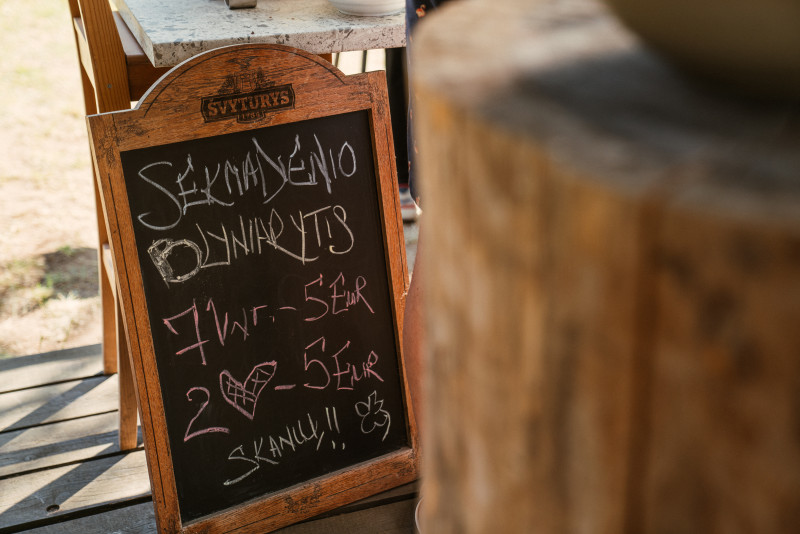 ŠVYTURYS
1784
SEKMADIENIO
BLYNIARYTIS
7 VNT. - 5 EUR
2 ♥ - 5 EUR
SKANU!!